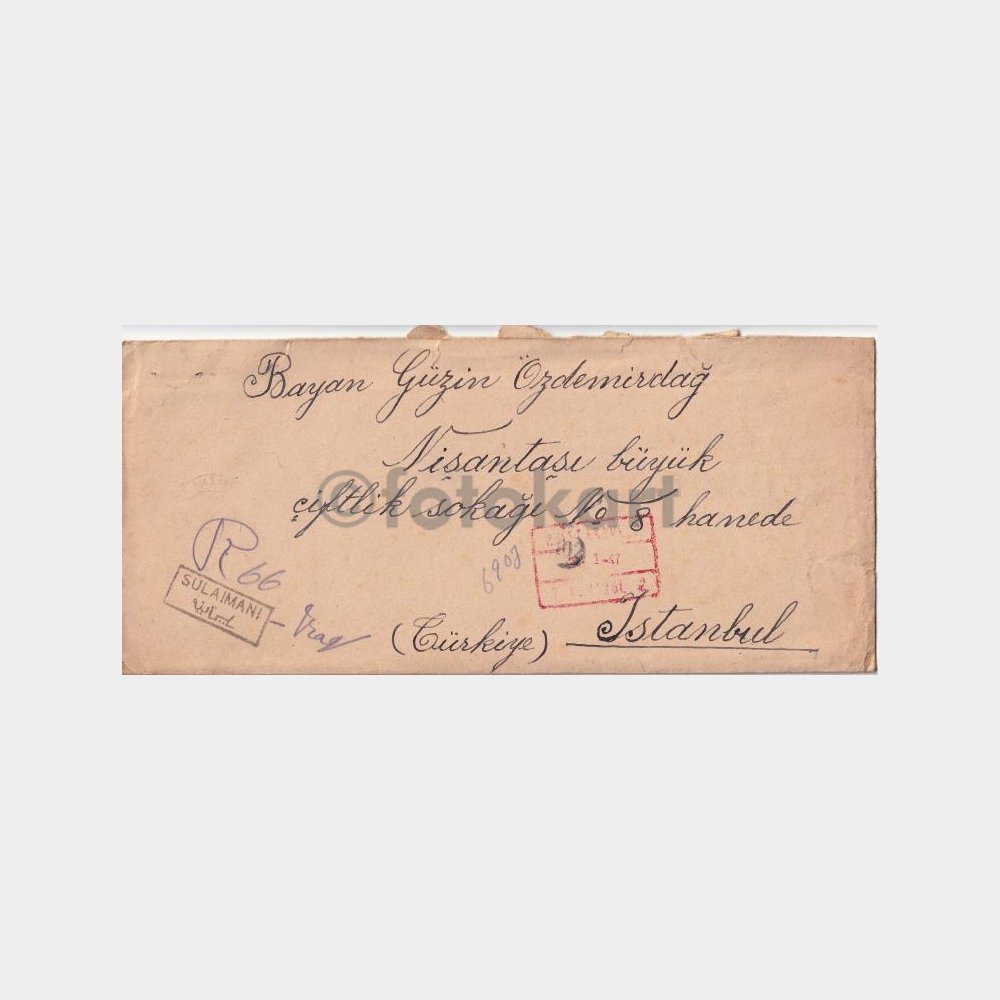 Bayan Güzin Özdemirdağ
Nişantaşı büyük
çiftlik şokağı No 8 hanede
©fotokart
6908
R 66
SULAIMANI
سليمانية
- Iraq
-47
2
(Türkiye) İstanbul